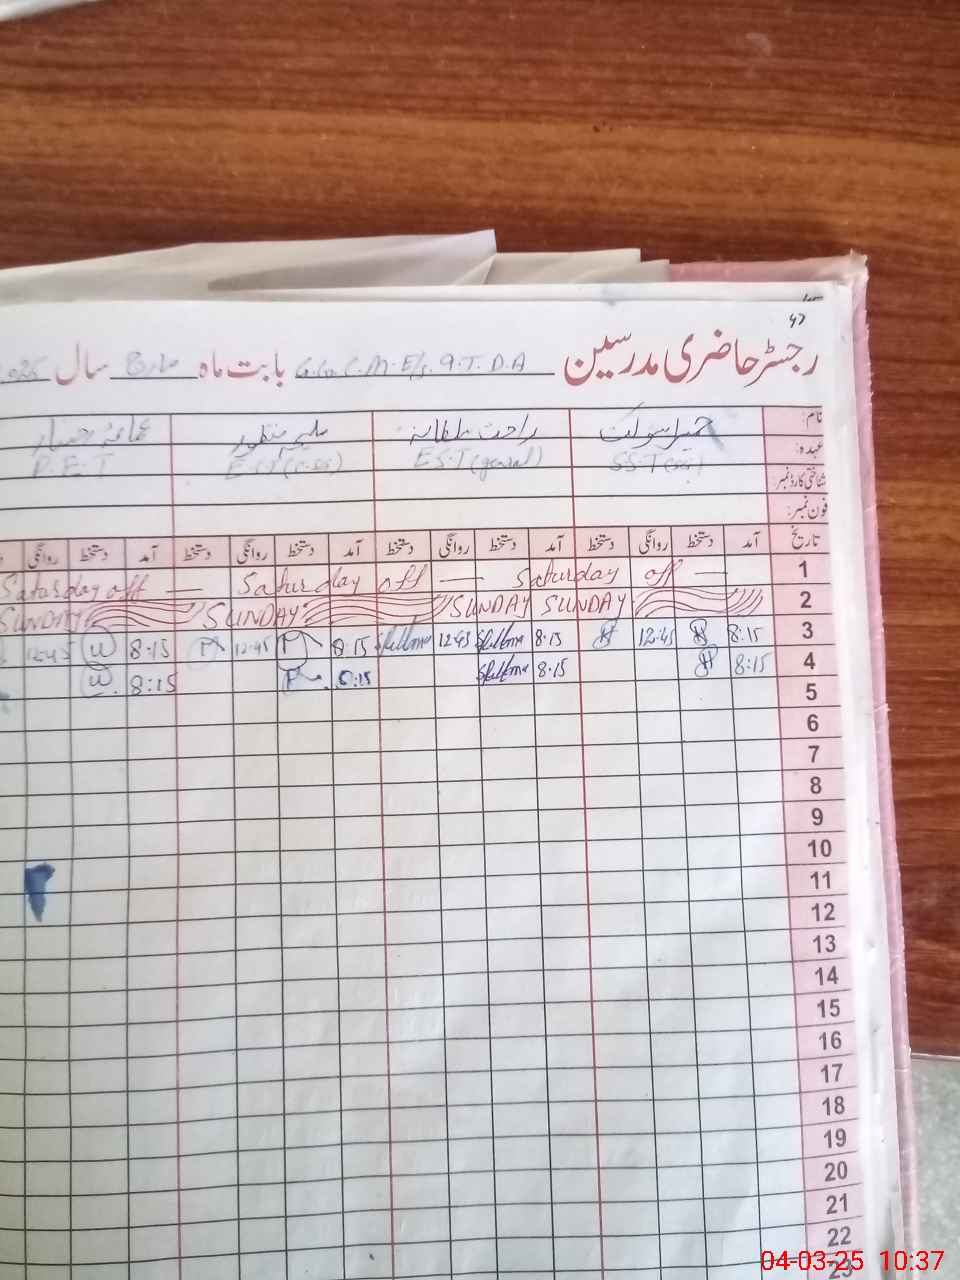 47
رجسٹر حاضری مدرسین G.G.C.M.E/s 9.T.D.A بابت ماہ مارچ سال 2025
نام: حمیرا شوکت راحت سلطانہ سلیمہ منظور
عہدہ: SST EST (general) EST P.E.T
شناختی کارڈ نمبر
فون نمبر:
تاریخ آمد دستخط روانگی دستخط آمد دستخط روانگی دستخط آمد دستخط روانگی دستخط آمد دستخط روانگی
1 Saturday off — Saturday off — Saturday off —
2 SUNDAY SUNDAY SUNDAY SUNDAY
3 8:15 12:45 8:15 12:45 8:15 12:45 8:15 12:45
4 8:15 8:15 8:15 8:15
5
6
7
8
9
10
11
12
13
14
15
16
17
18
19
20
21
22
23
04-03-25 10:37